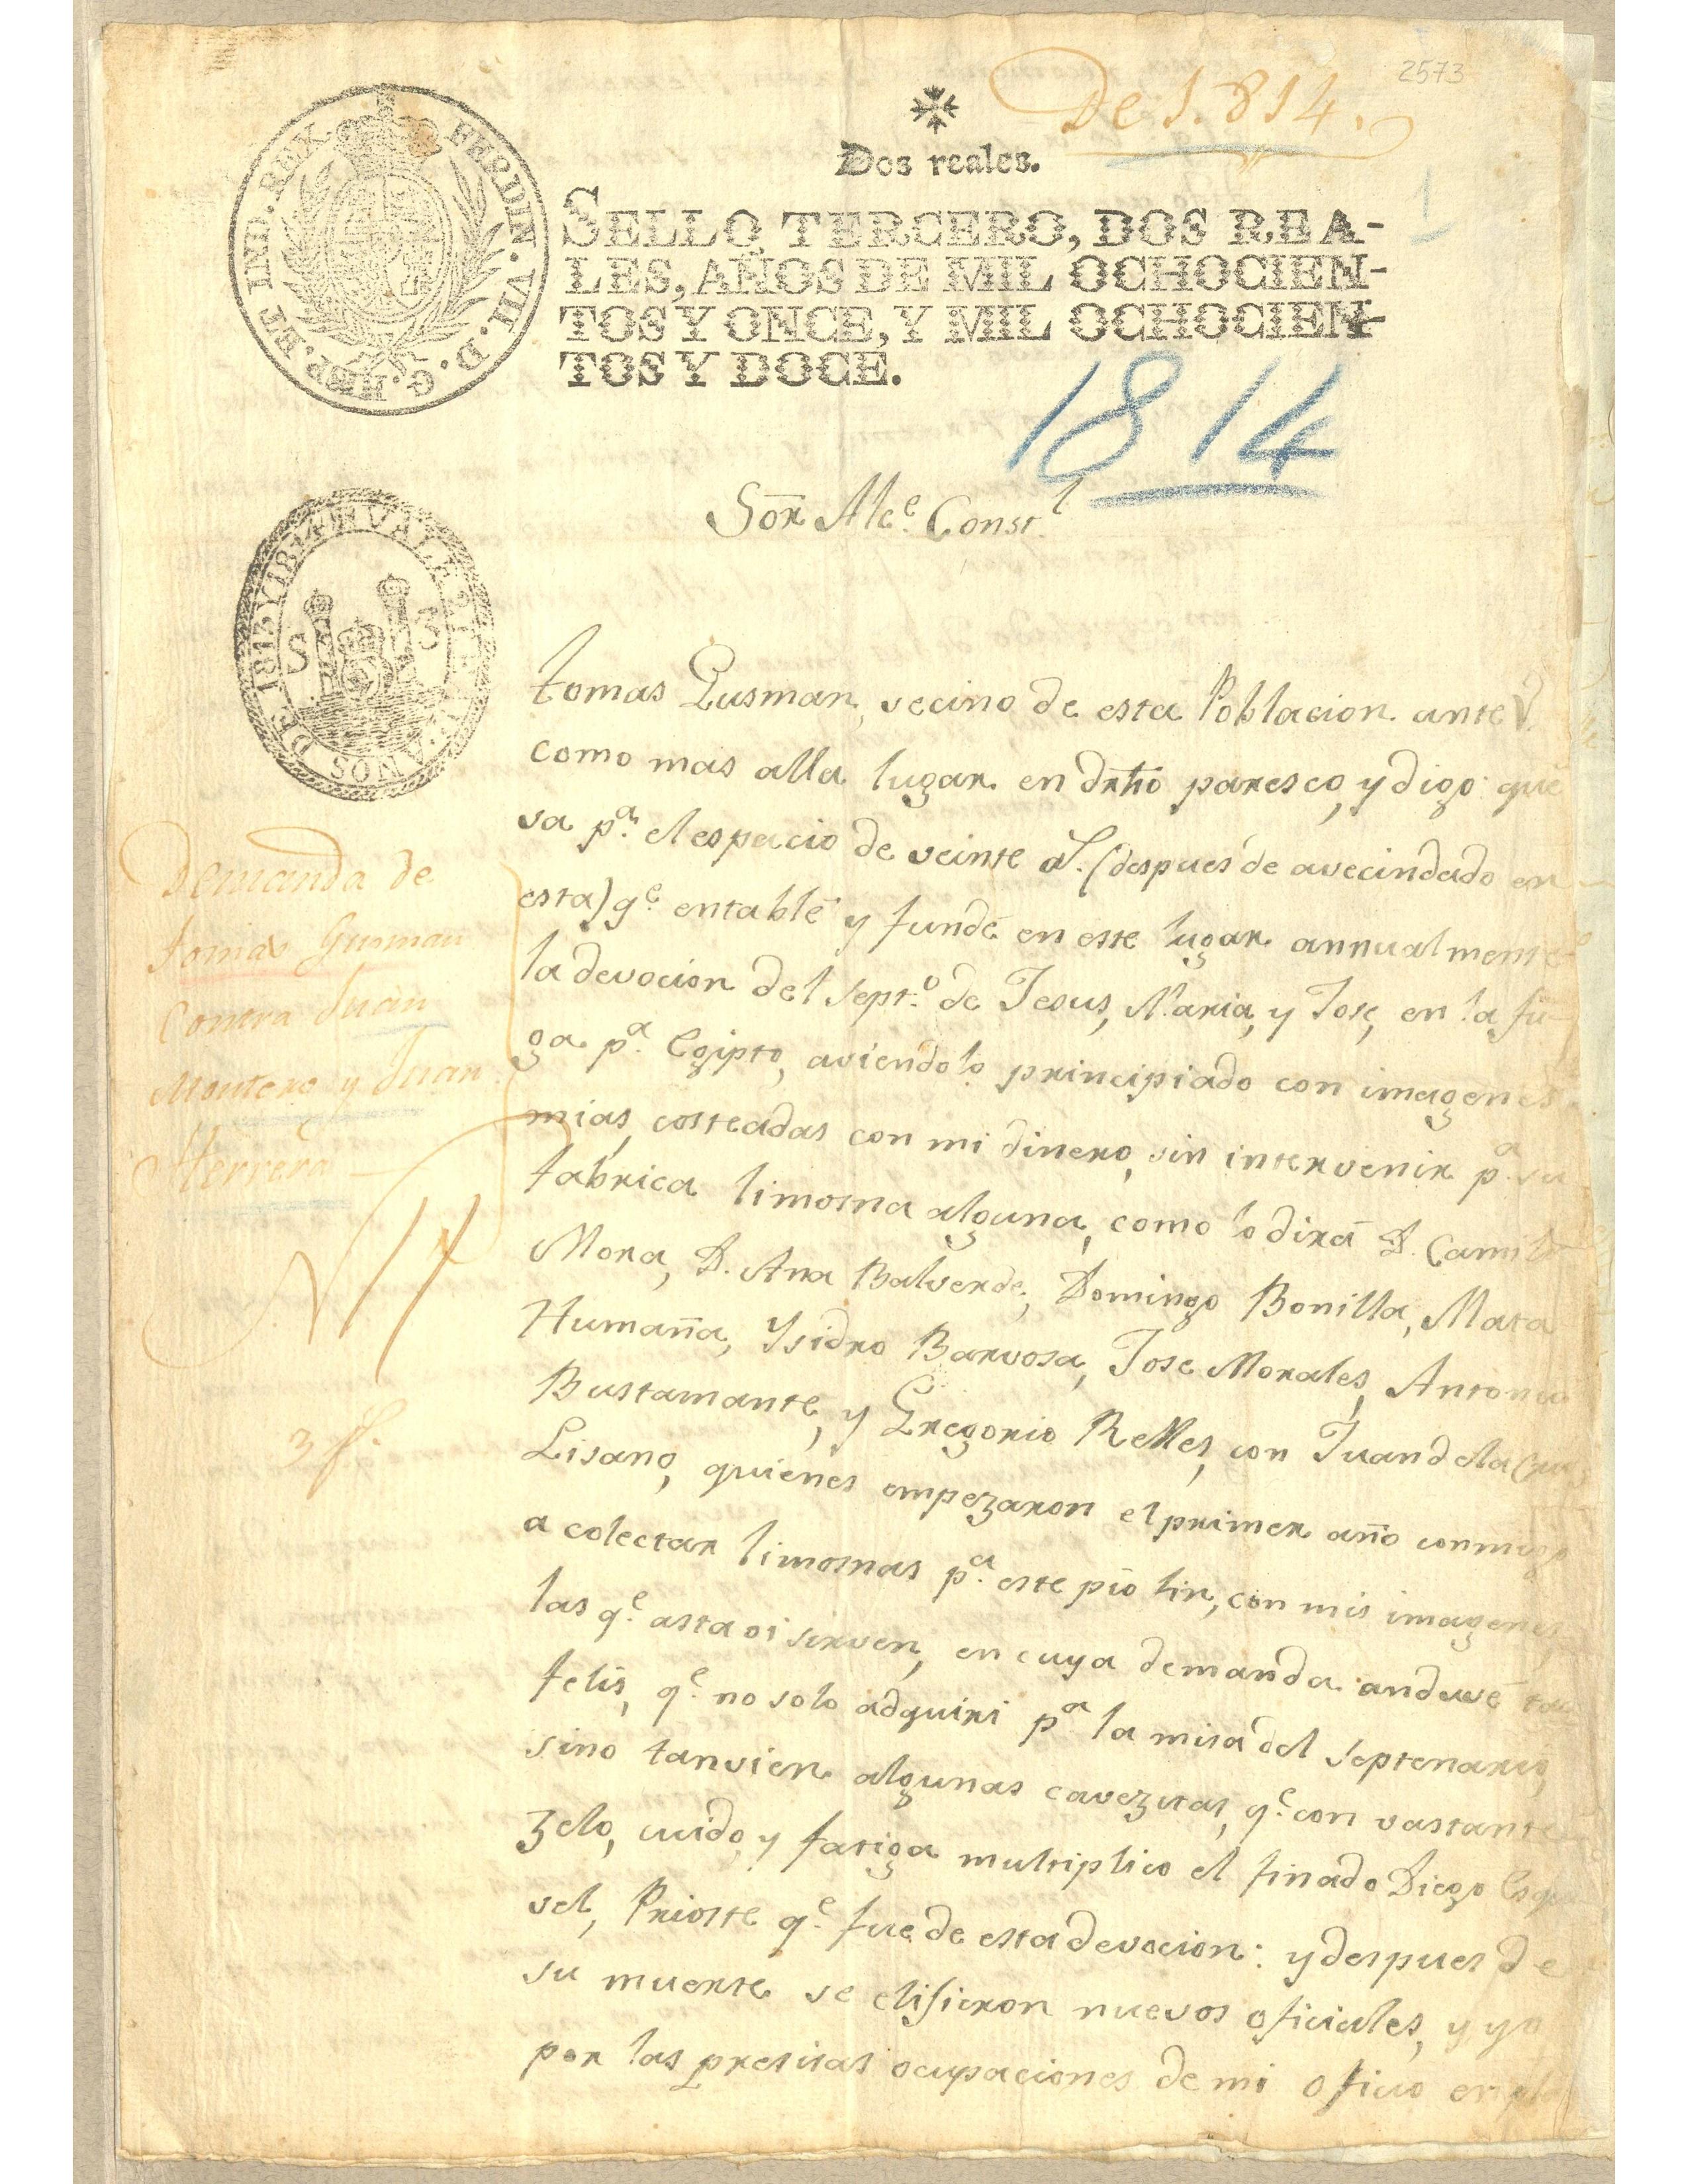 2573
De 1.814.
Dos reales.
1
FERDIN. VII. D. G. HISP. ET IND. REX.
SELLO TERCERO, DOS REA-
LES, AÑOS DE MIL OCHOCIEN-
TOS Y ONCE, Y MIL OCHOCIEN-
TOS Y DOCE.
1814
Sōr Alce. Constl.
S 3
AÑOS DE 1813 Y 1814
Demanda de
tomas Gusman
Contra Juan
Montero y Juan
Herrera
3 f.
tomas Gusman, vecino de esta Poblacion ante V.
como mas alla lugar en drho paresco, y digo: que
va pa. el espacio de veinte as. (despues de avecindado en
esta) qe. entablé y fundé en este lugar annualmente
la devocion del Septo. de Jesus, Maria, y Jose, en la fu-
ga pa. Egipto, aviendolo principiado con imagenes
mias, costeadas con mi dinero, sin intervenir pa. su
fabrica limosna alguna, como lo dirá D. Camilo
Mora, D. Ana Balverde, Domingo Bonilla, Mata
Humaña, Ysidro Barvosa, Jose Morales, Antonio
Bustamante, y Gregorio Relles, con Juan de la Cruz
Lisano, quienes empezaron el primer año conmigo
a colectar limosnas pa. este pio fin, con mis imagenes,
las qe. asta oi sirven, en cuya demanda anduve tan
felis, qe. no solo adquiri pa la misa del septenario,
sino tanvien algunas cavezitas, qe. con vastante
zelo, cuido, y fatiga multiplico el finado Diego Esqui
vel, Prioste qe. fue de esta devocion: y despues de
su muerte se elisieron nuevos oficiales, y yo
por las presisas ocupaciones de mi oficio